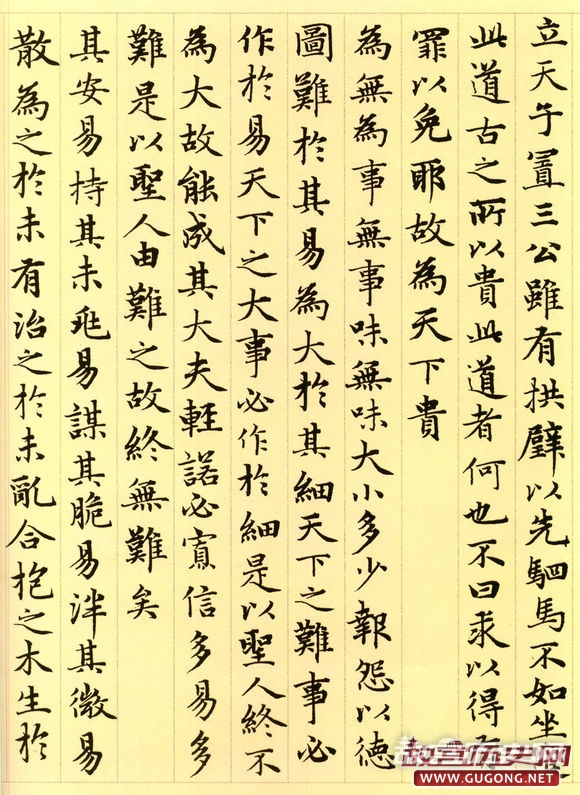 立天子置三公雖有拱璧以先駟馬不如坐
此道古之所以貴此道者何也不曰求以得有
罪以免耶故為天下貴
為無為事無事味無味大小多少報怨以徳
圖難於其易為大於其細天下之難事必
作於易天下之大事必作於細是以聖人終不
為大故能成其大夫輕諾必寡信多易多
難是以聖人由難之故終無難矣
其安易持其未兆易謀其脆易泮其微易
散為之於未有治之於未亂合抱之木生於
故宫历史网
WWW.GUGONG.NET